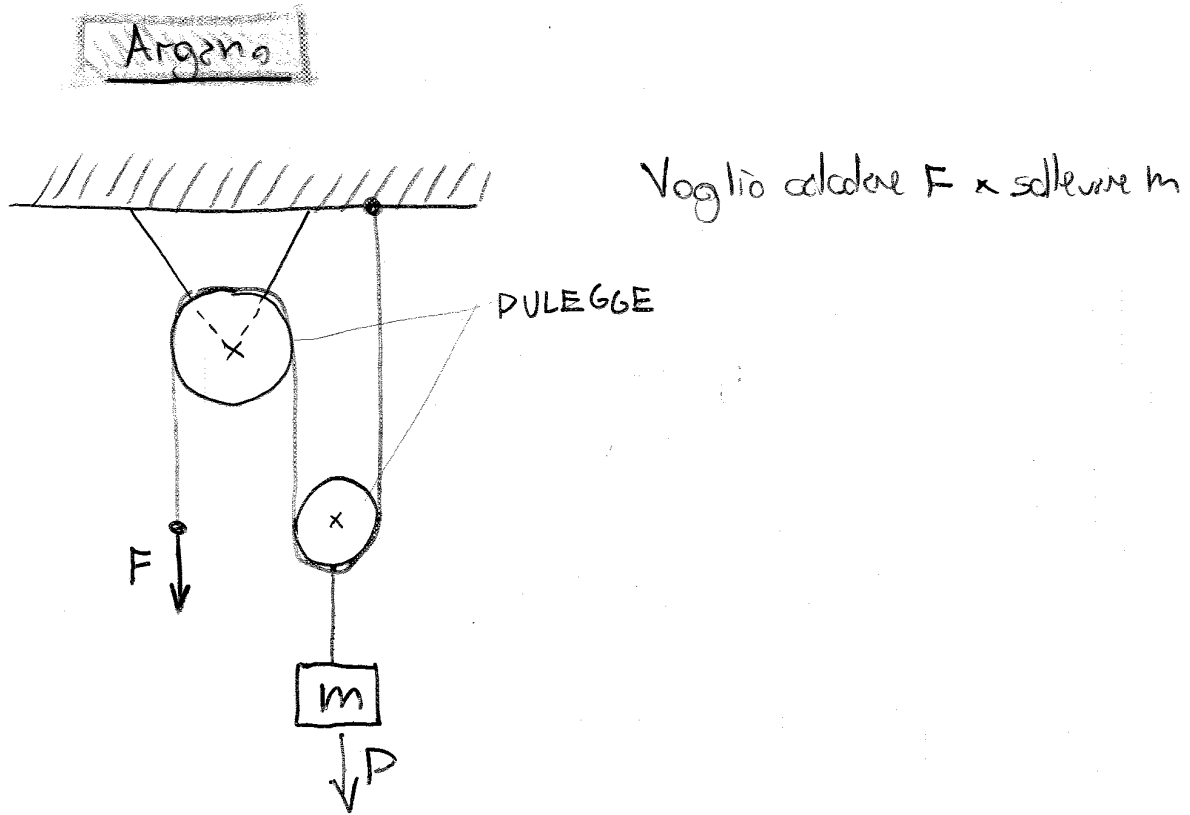 Argano
Voglio calcolare F x sollevare m
PULEGGE
F
m
P